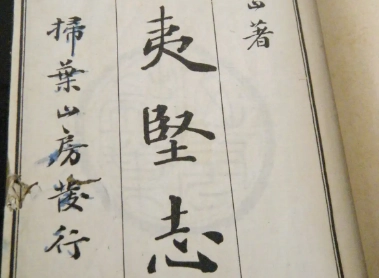 山著
夷堅志
掃葉山房發行